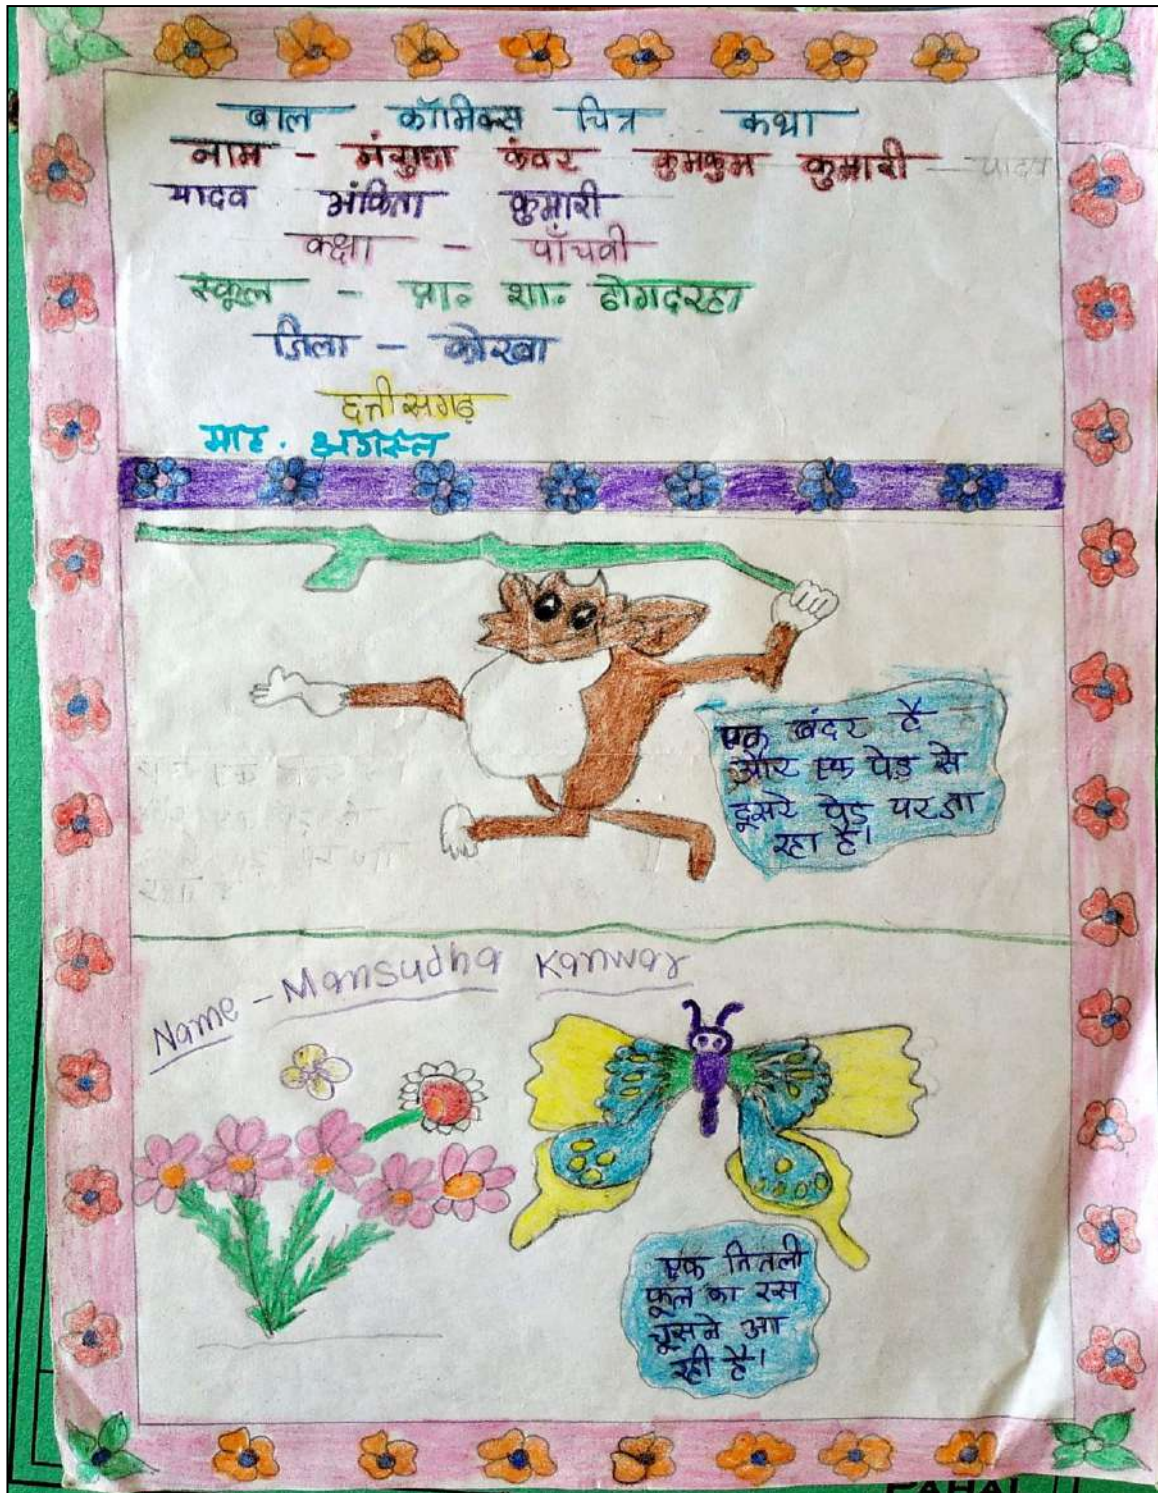 बाल कॉमिक्स चित्र कथा
नाम - मंसुधा कंवर कुमकुम कुमारी यादव
यादव अंकिता कुमारी
कक्षा - पाँचवी
स्कूल - प्रा० शा० ढोगदरहा
जिला - कोरबा
छत्तीसगढ़
माह. अगस्त
एक बंदर है
और एक पेड़ से
दूसरे पेड़ पर जा
रहा है।
Name - Mansudha Kanwar
एक तितली
फूल का रस
चूसने आ
रही है।